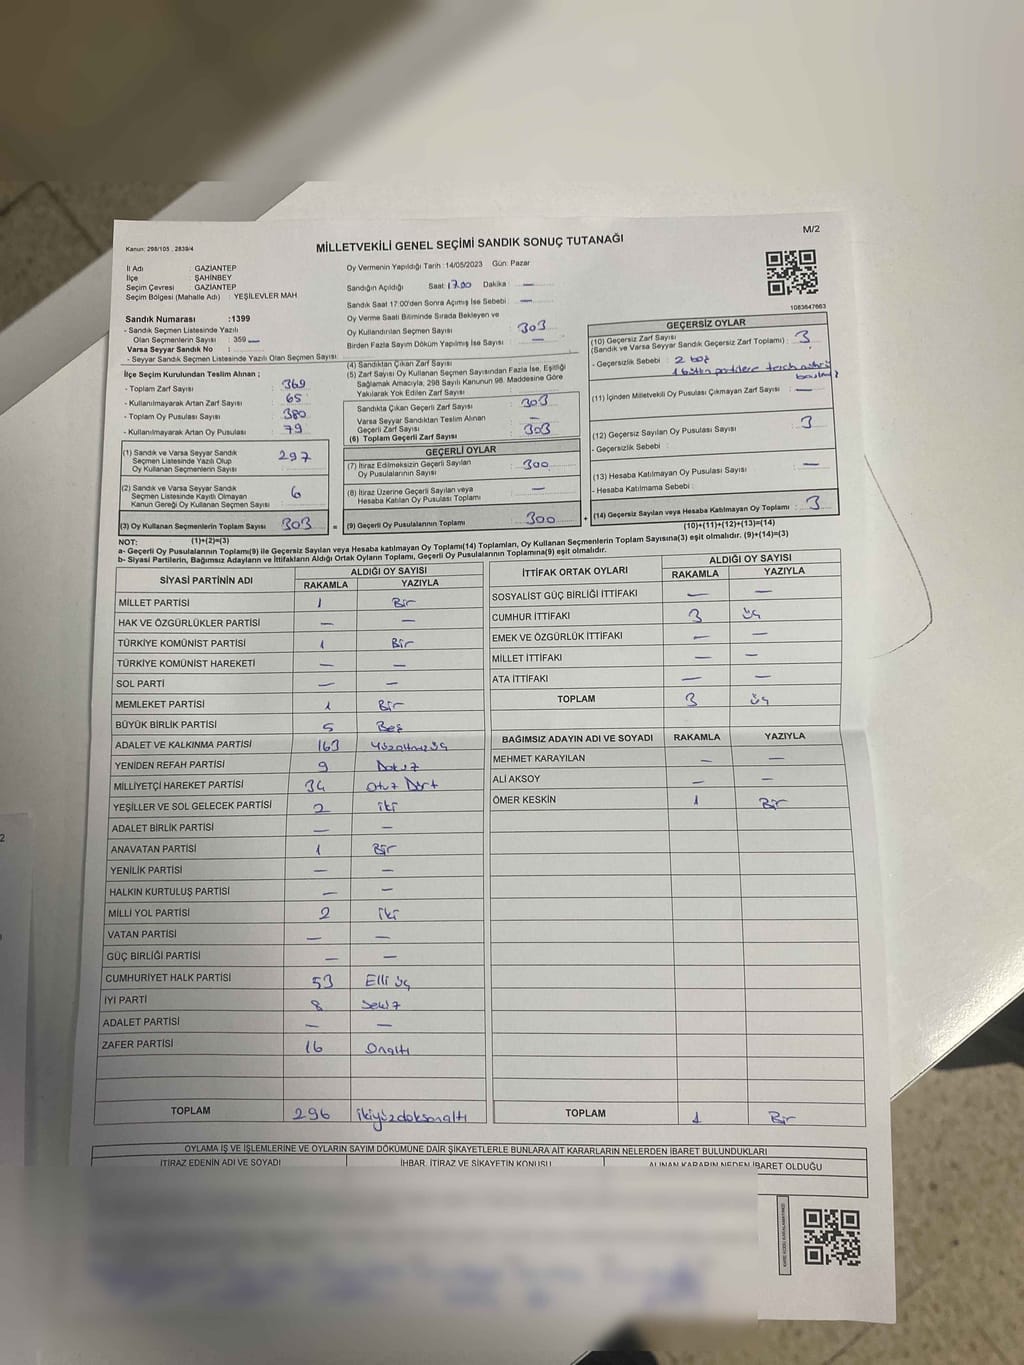 Kanun: 298/105 , 2839/4
M/2
MİLLETVEKİLİ GENEL SEÇİMİ SANDIK SONUÇ TUTANAĞI
İl Adı : GAZİANTEP
İlçe : ŞAHİNBEY
Seçim Çevresi : GAZİANTEP
Seçim Bölgesi (Mahalle Adı) : YEŞİLEVLER MAH
Sandık Numarası :1399
- Sandık Seçmen Listesinde Yazılı
Olan Seçmenlerin Sayısı : 359
Varsa Seyyar Sandık No :
- Seyyar Sandık Seçmen Listesinde Yazılı Olan Seçmen Sayısı
Oy Vermenin Yapıldığı Tarih :14/05/2023 Gün: Pazar
Sandığın Açıldığı Saat 17.00 Dakika —
Sandık Saat 17:00'den Sonra Açımış İse Sebebi : —
Oy Verme Saati Bitiminde Sırada Bekleyen ve
Oy Kullandırılan Seçmen Sayısı : 303
Birden Fazla Sayım Döküm Yapılmış İse Sayısı : —
1083647663
İlçe Seçim Kurulundan Teslim Alınan ;
- Toplam Zarf Sayısı : 369
- Kullanılmayarak Artan Zarf Sayısı : 65
- Toplam Oy Pusulası Sayısı : 380
- Kullanılmayarak Artan Oy Pusulası : 79
(1) Sandık ve Varsa Seyyar Sandık
Seçmen Listesinde Yazılı Olup
Oy Kullanan Seçmenlerin Sayısı : 297
(2) Sandık ve Varsa Seyyar Sandık
Seçmen Listesinde Kayıtlı Olmayan
Kanun Gereği Oy Kullanan Seçmen Sayısı : 6
(3) Oy Kullanan Seçmenlerin Toplam Sayısı : 303
(1)+(2)=(3)
(4) Sandıktan Çıkan Zarf Sayısı
(5) Zarf Sayısı Oy Kullanan Seçmen Sayısından Fazla İse, Eşitliği
Sağlamak Amacıyla, 298 Sayılı Kanunun 98. Maddesine Göre
Yakılarak Yok Edilen Zarf Sayısı :
Sandıkta Çıkan Geçerli Zarf Sayısı : 303
Varsa Seyyar Sandıktan Teslim Alınan
Geçerli Zarf Sayısı : —
(6) Toplam Geçerli Zarf Sayısı : 303
GEÇERLİ OYLAR
(7) İtiraz Edilmeksizin Geçerli Sayılan
Oy Pusulalarının Sayısı : 300
(8) İtiraz Üzerine Geçerli Sayılan veya
Hesaba Katılan Oy Pusulası Toplamı : —
= (9) Geçerli Oy Pusulalarının Toplamı : 300
GEÇERSİZ OYLAR
(10) Geçersiz Zarf Sayısı
(Sandık ve Varsa Seyyar Sandık Geçersiz Zarf Toplamı) : 3
- Geçersizlik Sebebi : 2 boş
1 bütün partilere tercih mührü
(11) İçinden Milletvekili Oy Pusulası Çıkmayan Zarf Sayısı : —
(12) Geçersiz Sayılan Oy Pusulası Sayısı : 3
- Geçersizlik Sebebi :
(13) Hesaba Katılmayan Oy Pusulası Sayısı : —
- Hesaba Katılmama Sebebi :
+ (14) Geçersiz Sayılan veya Hesaba Katılmayan Oy Toplamı : 3
(10)+(11)+(12)+(13)=(14)
NOT:
a- Geçerli Oy Pusulalarının Toplamı(9) ile Geçersiz Sayılan veya Hesaba katılmayan Oy Toplamı(14) Toplamları, Oy Kullanan Seçmenlerin Toplam Sayısına(3) eşit olmalıdır. (9)+(14)=(3)
b- Siyasi Partilerin, Bağımsız Adayların ve İttifakların Aldığı Ortak Oyların Toplamı, Geçerli Oy Pusulalarının Toplamına(9) eşit olmalıdır.
SİYASİ PARTİNİN ADI ALDIĞI OY SAYISI
RAKAMLA YAZIYLA
MİLLET PARTİSİ 1 Bir
HAK VE ÖZGÜRLÜKLER PARTİSİ — —
TÜRKİYE KOMÜNİST PARTİSİ 1 Bir
TÜRKİYE KOMÜNİST HAREKETİ — —
SOL PARTİ — —
MEMLEKET PARTİSİ 1 Bir
BÜYÜK BİRLİK PARTİSİ 5 Beş
ADALET VE KALKINMA PARTİSİ 163 Yüzaltmışüç
YENİDEN REFAH PARTİSİ 9 Dokuz
MİLLİYETÇİ HAREKET PARTİSİ 34 Otuz Dört
YEŞİLLER VE SOL GELECEK PARTİSİ 2 iki
ADALET BİRLİK PARTİSİ — —
ANAVATAN PARTİSİ 1 Bir
YENİLİK PARTİSİ — —
HALKIN KURTULUŞ PARTİSİ — —
MİLLİ YOL PARTİSİ 2 iki
VATAN PARTİSİ — —
GÜÇ BİRLİĞİ PARTİSİ — —
CUMHURİYET HALK PARTİSİ 53 Elli üç
İYİ PARTİ 8 Sekiz
ADALET PARTİSİ — —
ZAFER PARTİSİ 16 Onaltı
TOPLAM 296 ikiyüzdoksanaltı
İTTİFAK ORTAK OYLARI ALDIĞI OY SAYISI
RAKAMLA YAZIYLA
SOSYALİST GÜÇ BİRLİĞİ İTTİFAKI — —
CUMHUR İTTİFAKI 3 üç
EMEK VE ÖZGÜRLÜK İTTİFAKI — —
MİLLET İTTİFAKI — —
ATA İTTİFAKI — —
TOPLAM 3 üç
BAĞIMSIZ ADAYIN ADI VE SOYADI RAKAMLA YAZIYLA
MEHMET KARAYILAN — —
ALİ AKSOY — —
ÖMER KESKİN 1 Bir
TOPLAM 1 Bir
OYLAMA İŞ VE İŞLEMLERİNE VE OYLARIN SAYIM DÖKÜMÜNE DAİR ŞİKAYETLERLE BUNLARA AİT KARARLARIN NELERDEN İBARET BULUNDUKLARI
İTİRAZ EDENİN ADI VE SOYADI İHBAR, İTİRAZ VE ŞİKAYETİN KONUSU ALINAN KARARIN NEDEN İBARET OLDUĞU